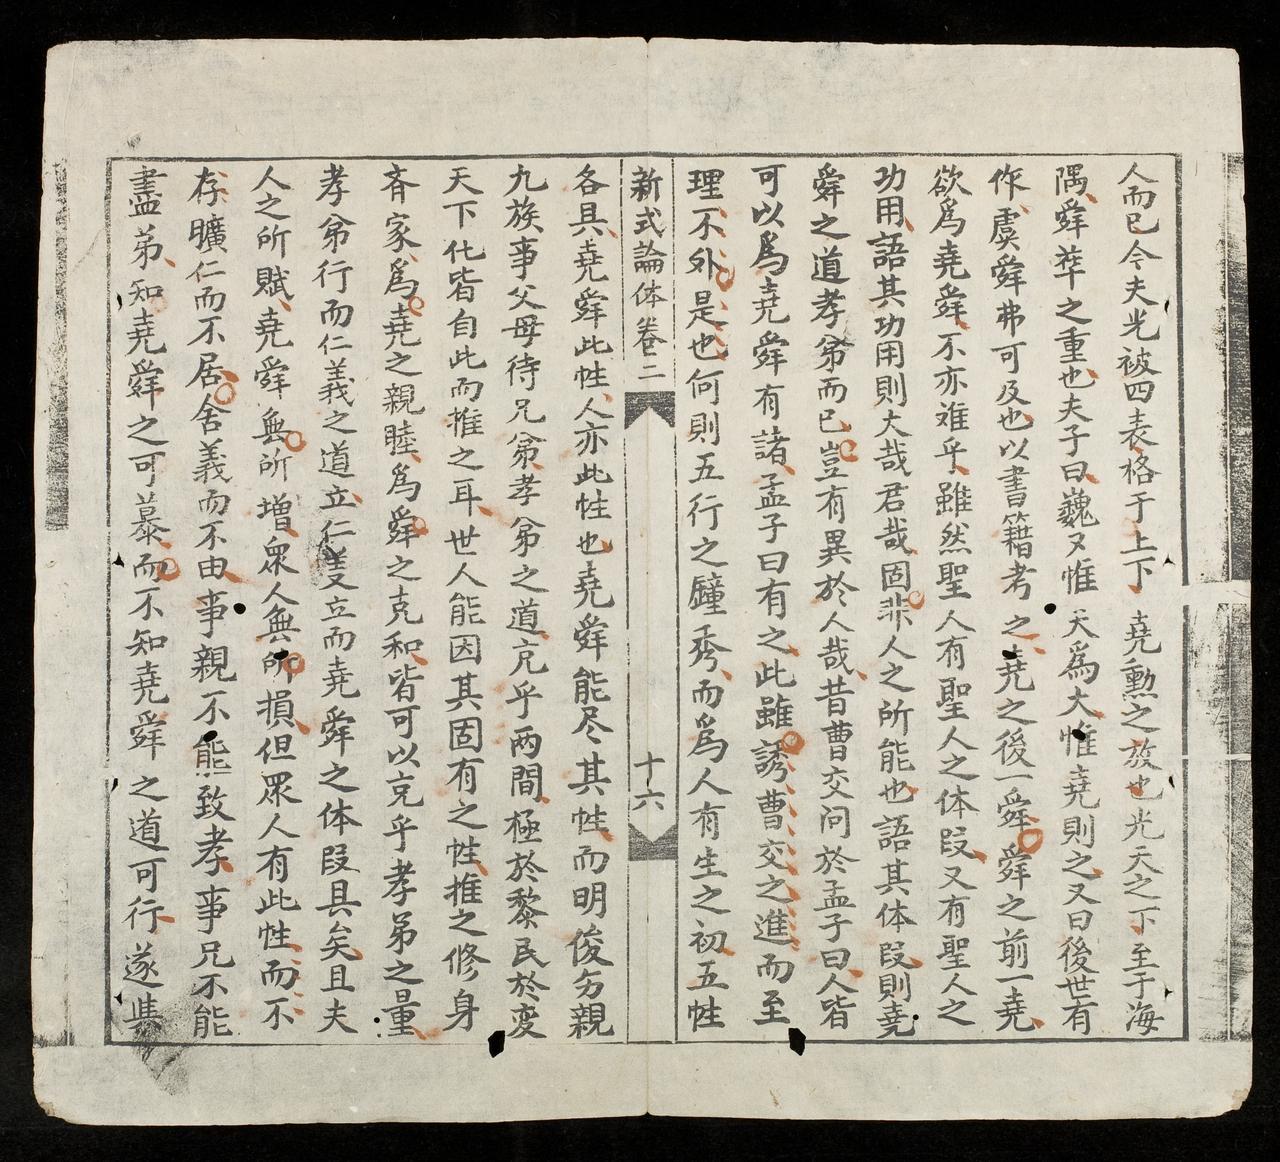 人而已今夫光被四表格于上下堯勲之放也光天之下至于海
隅舜華之重也夫子曰巍又惟天為大惟堯則之又曰後世有
作虞舜弗可及也以書籍考之堯之後一舜舜之前一堯
欲為堯舜不亦难乎雖然聖人有聖人之体段又有聖人之
功用語其功用則大哉君哉固非人之所能也語其体段則堯
舜之道孝弟而已豈有異於人哉昔曹交问於孟子曰人皆
可以為堯舜有諸孟子曰有之此雖誘曹交之進而至
理不外是也何則五行之鍾秀而為人有生之初五性
新式論体卷二 十六
各具堯舜此性人亦此性也堯舜能尽其性而明俊为親
九族事父母待兄弟孝弟之道克乎两間極於黎民於变
天下化皆自此而推之耳世人能因其固有之性推之修身
斉家為堯之親睦為舜之克和皆可以克乎孝弟之量
孝弟行而仁義之道立仁義立而堯舜之体段具矣且夫
人之所賦堯舜無所增众人無所損但众人有此性而不
存曠仁而不居舍義而不由事親不能致孝事兄不能
盡弟知堯舜之可慕而不知堯舜之道可行遂与